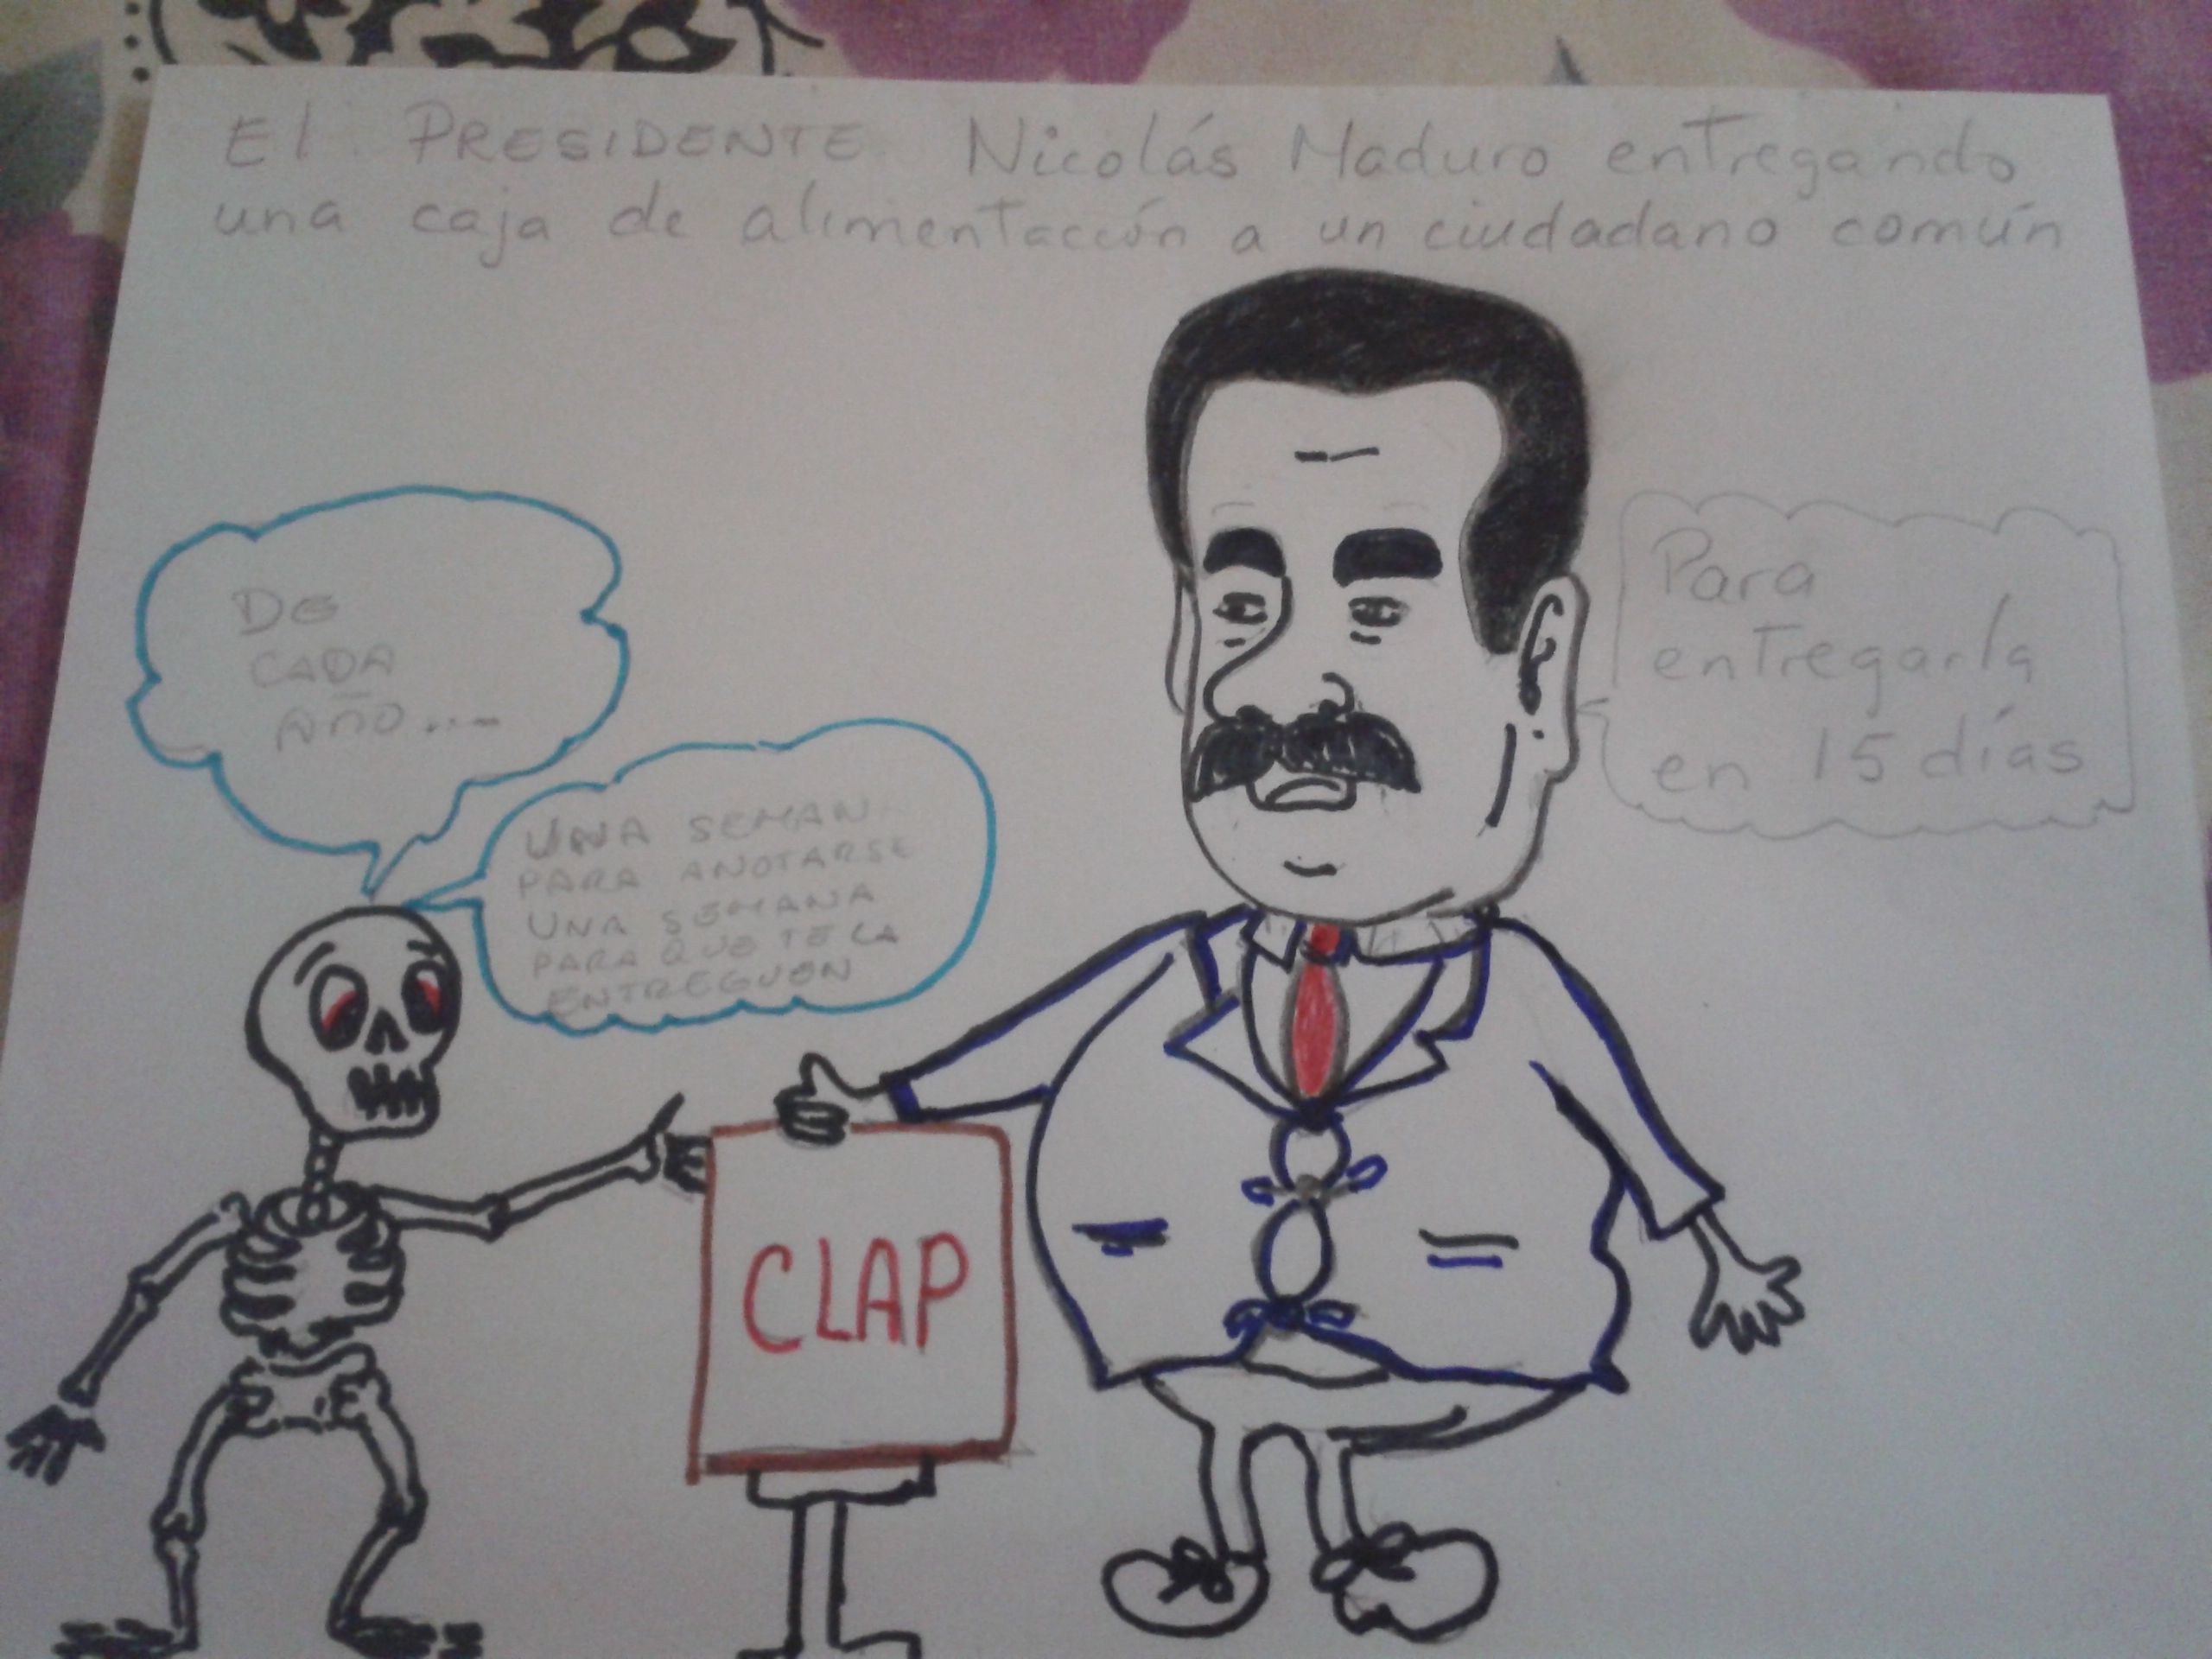 El PRESIDENTE Nicolás Maduro entregando
una caja de alimentación a un ciudadano común
DE
CADA
AÑO....
UNA SEMAN
PARA ANOTARSE
UNA SEMANA
PARA QUE TE LA
ENTREGUEN
Para
entregarla
en 15 días
CLAP